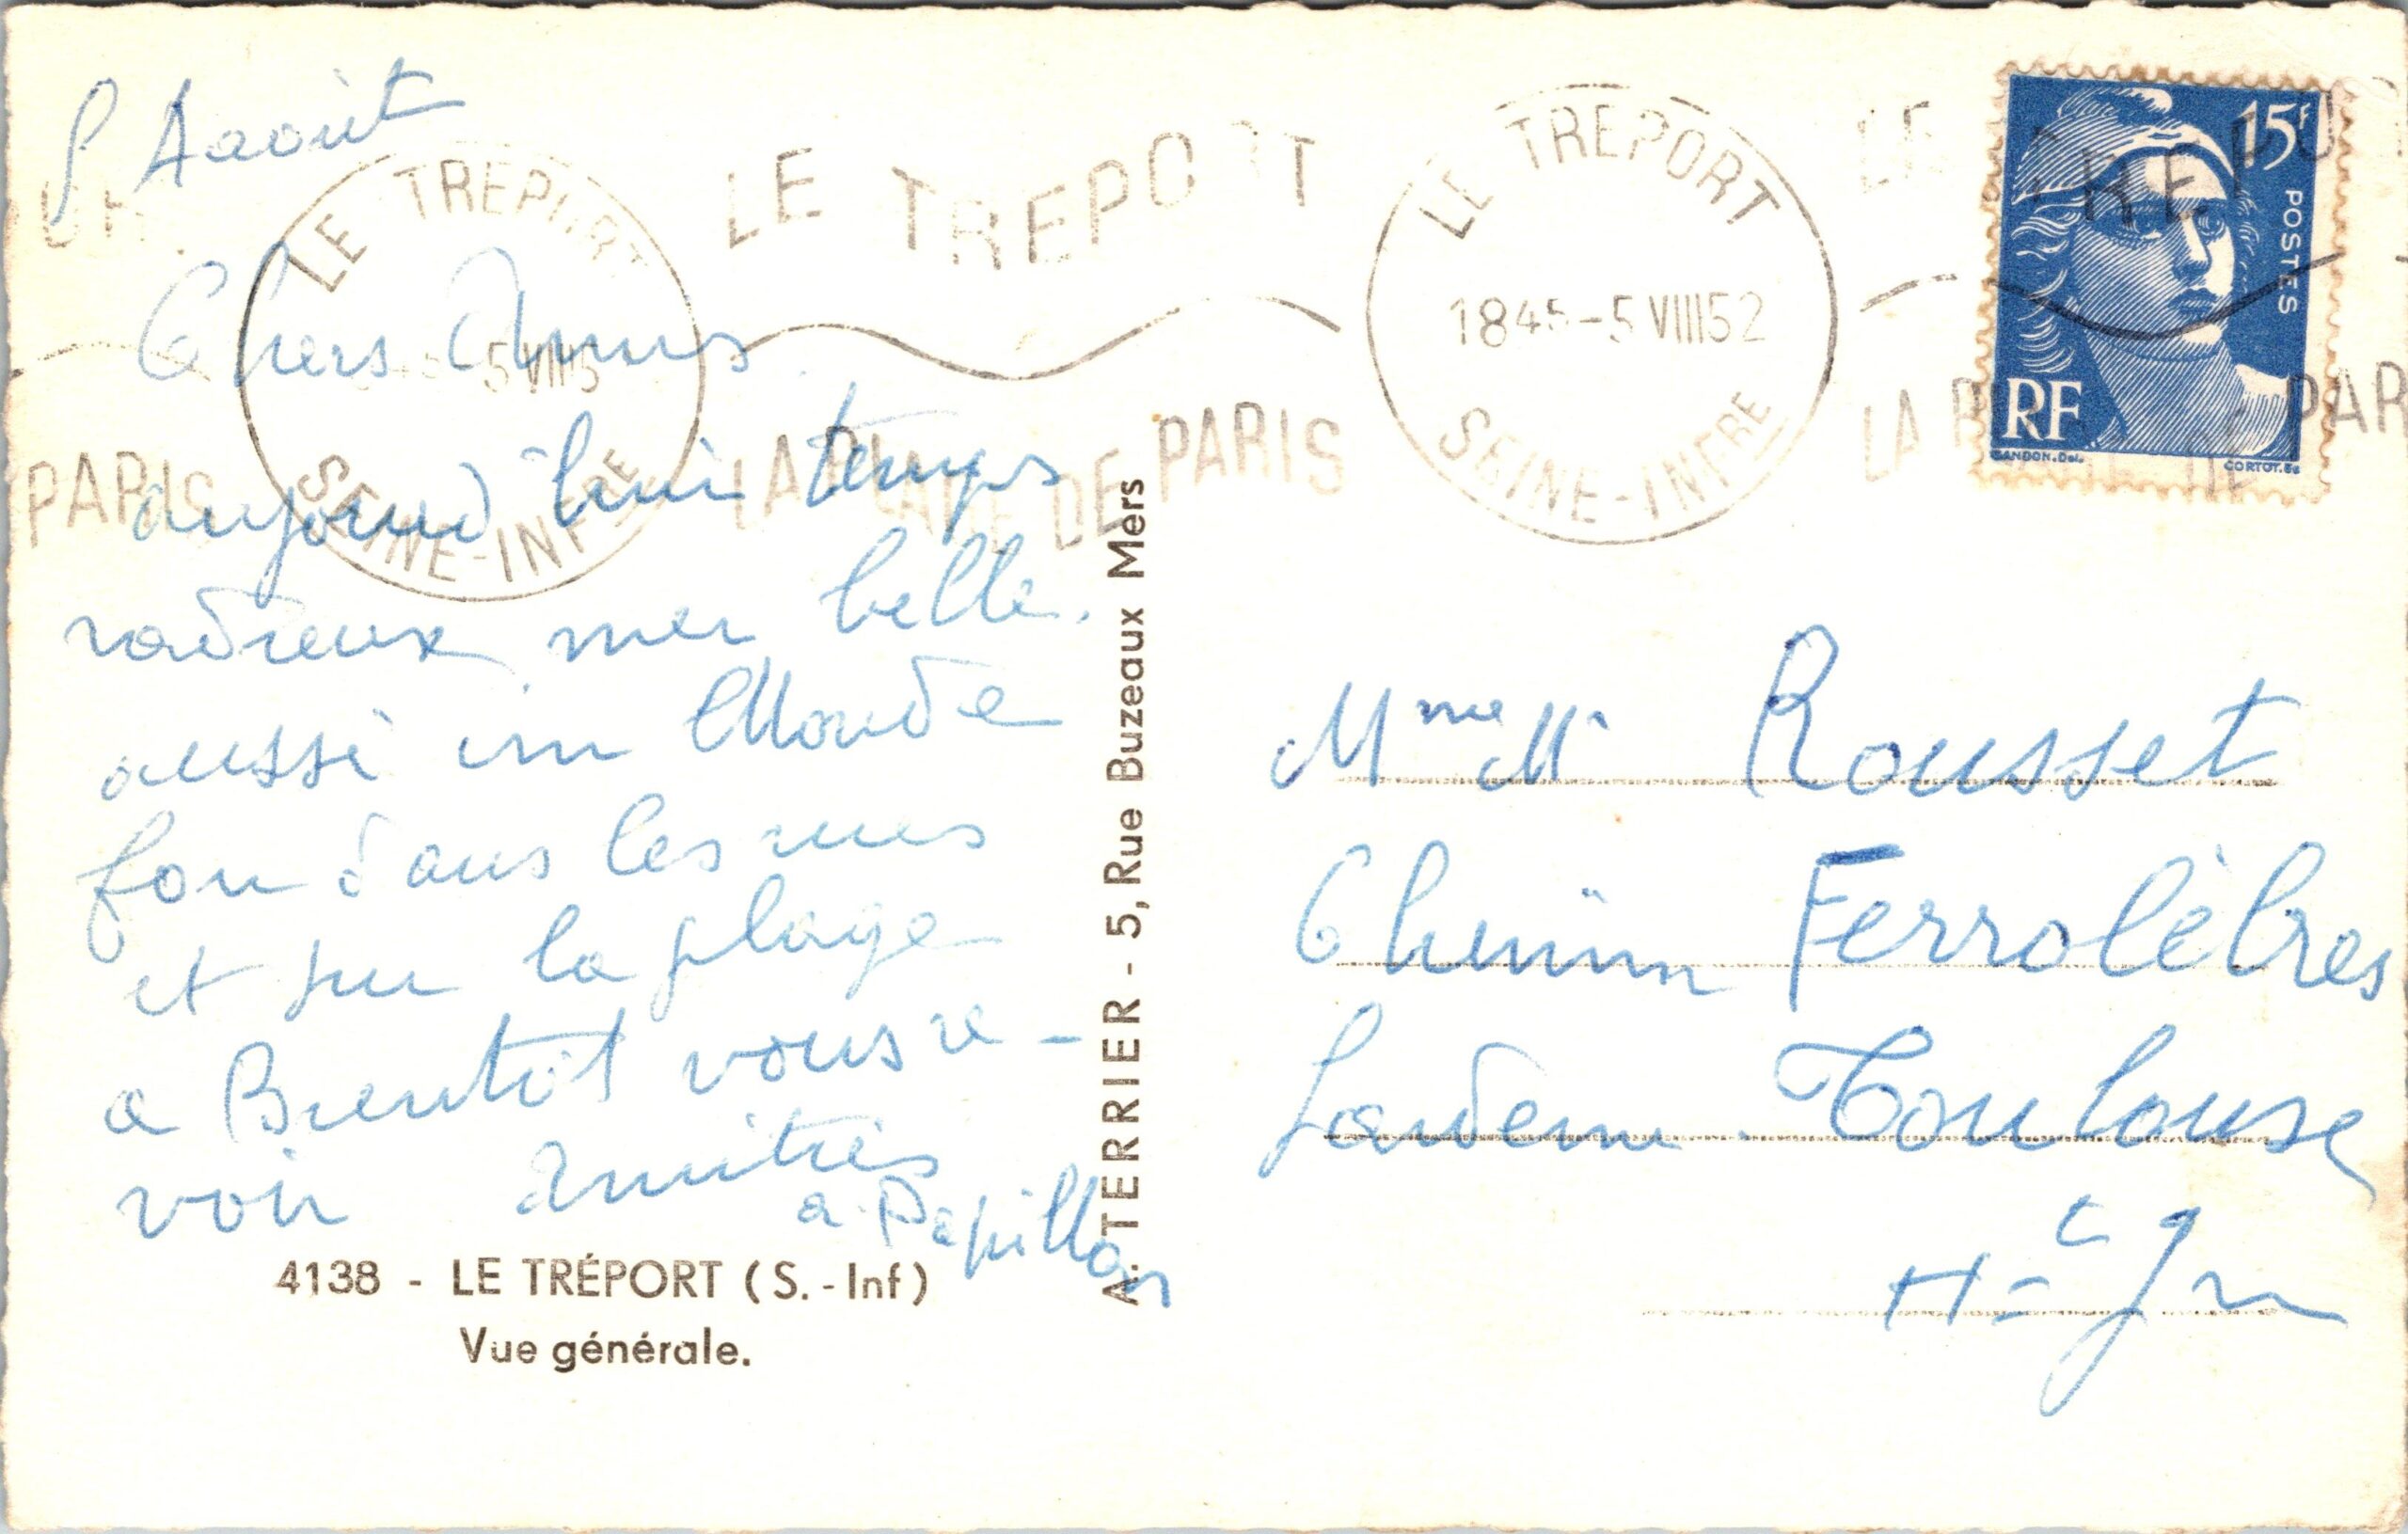 5 Août
Chers Amis
aujourd'hui temps
radieux mer belle.
aussi un Monde
fou dans les rues
et sur la plage
a Bientôt vous re-
voir Amitiés
a. Papillon
4138 - LE TRÉPORT (S.-Inf)
Vue générale.
A. TERRIER - 5, Rue Buzeaux Mers
LE TREPORT
5 VIII 5
SEINE-INFRE
PARIS
LE TREPORT
LA PLAGE DE PARIS
LE TREPORT
1845-5 VIII52
SEINE-INFRE
LE TREPO
LA PLAGE DE PAR
15F
POSTES
RF
GANDON.Del.
CORTOT.Sc
Mme Mr Rousset
Chemin Ferrolèbres
Toulouse
Hte Gne